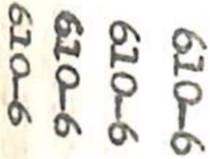 610-6
610-6
610-6
610-6